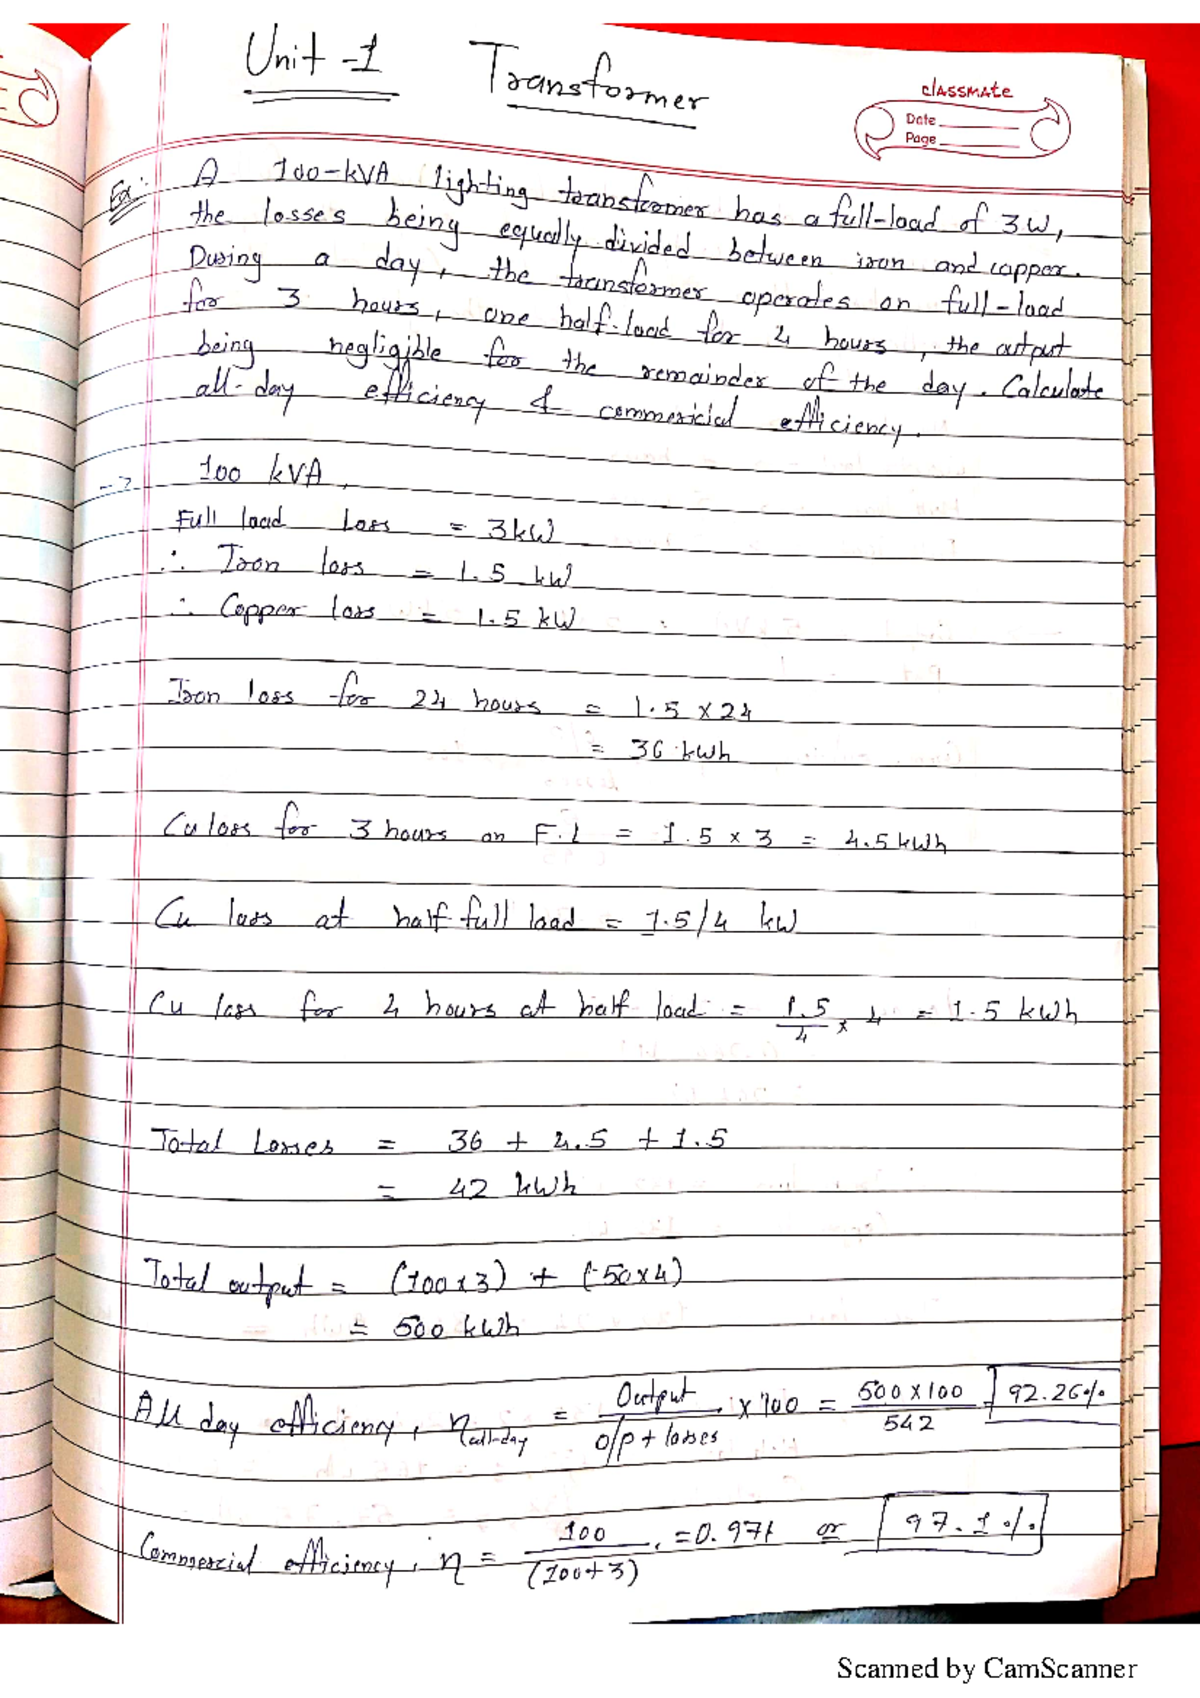 Unit-1 Transformer
classmate
Date
Page
Ex:- A 100-kVA lighting transformer has a full-load of 3W,
the losses being equally divided between iron and copper.
During a day, the transformer operates on full-load
for 3 hours, one half-load for 4 hours, the output
being negligible for the remainder of the day. Calculate
all-day efficiency & commericial efficiency.
→ 100 kVA,
Full load Loss = 3kW
∴ Iron loss = 1.5 kW
∴ Copper loss = 1.5 kW
Iron loss for 24 hours = 1.5 x 24
= 36 kWh
Cu loss for 3 hours on F.L = 1.5 x 3 = 4.5 kWh
Cu loss at half full load = 1.5/4 kW
Cu loss for 4 hours at half load = 1.5/4 x 4 = 1.5 kWh
Total Losses = 36 + 4.5 + 1.5
= 42 kWh
Total output = (100x3) + (50x4)
= 500 kWh
All day efficiency, η all-day = Output / o/p + losses x 100 = 500 x 100 / 542 = 92.26%
Commercial efficiency, η = 100 / (100+3) = 0.971 or 97.1%
Scanned by CamScanner